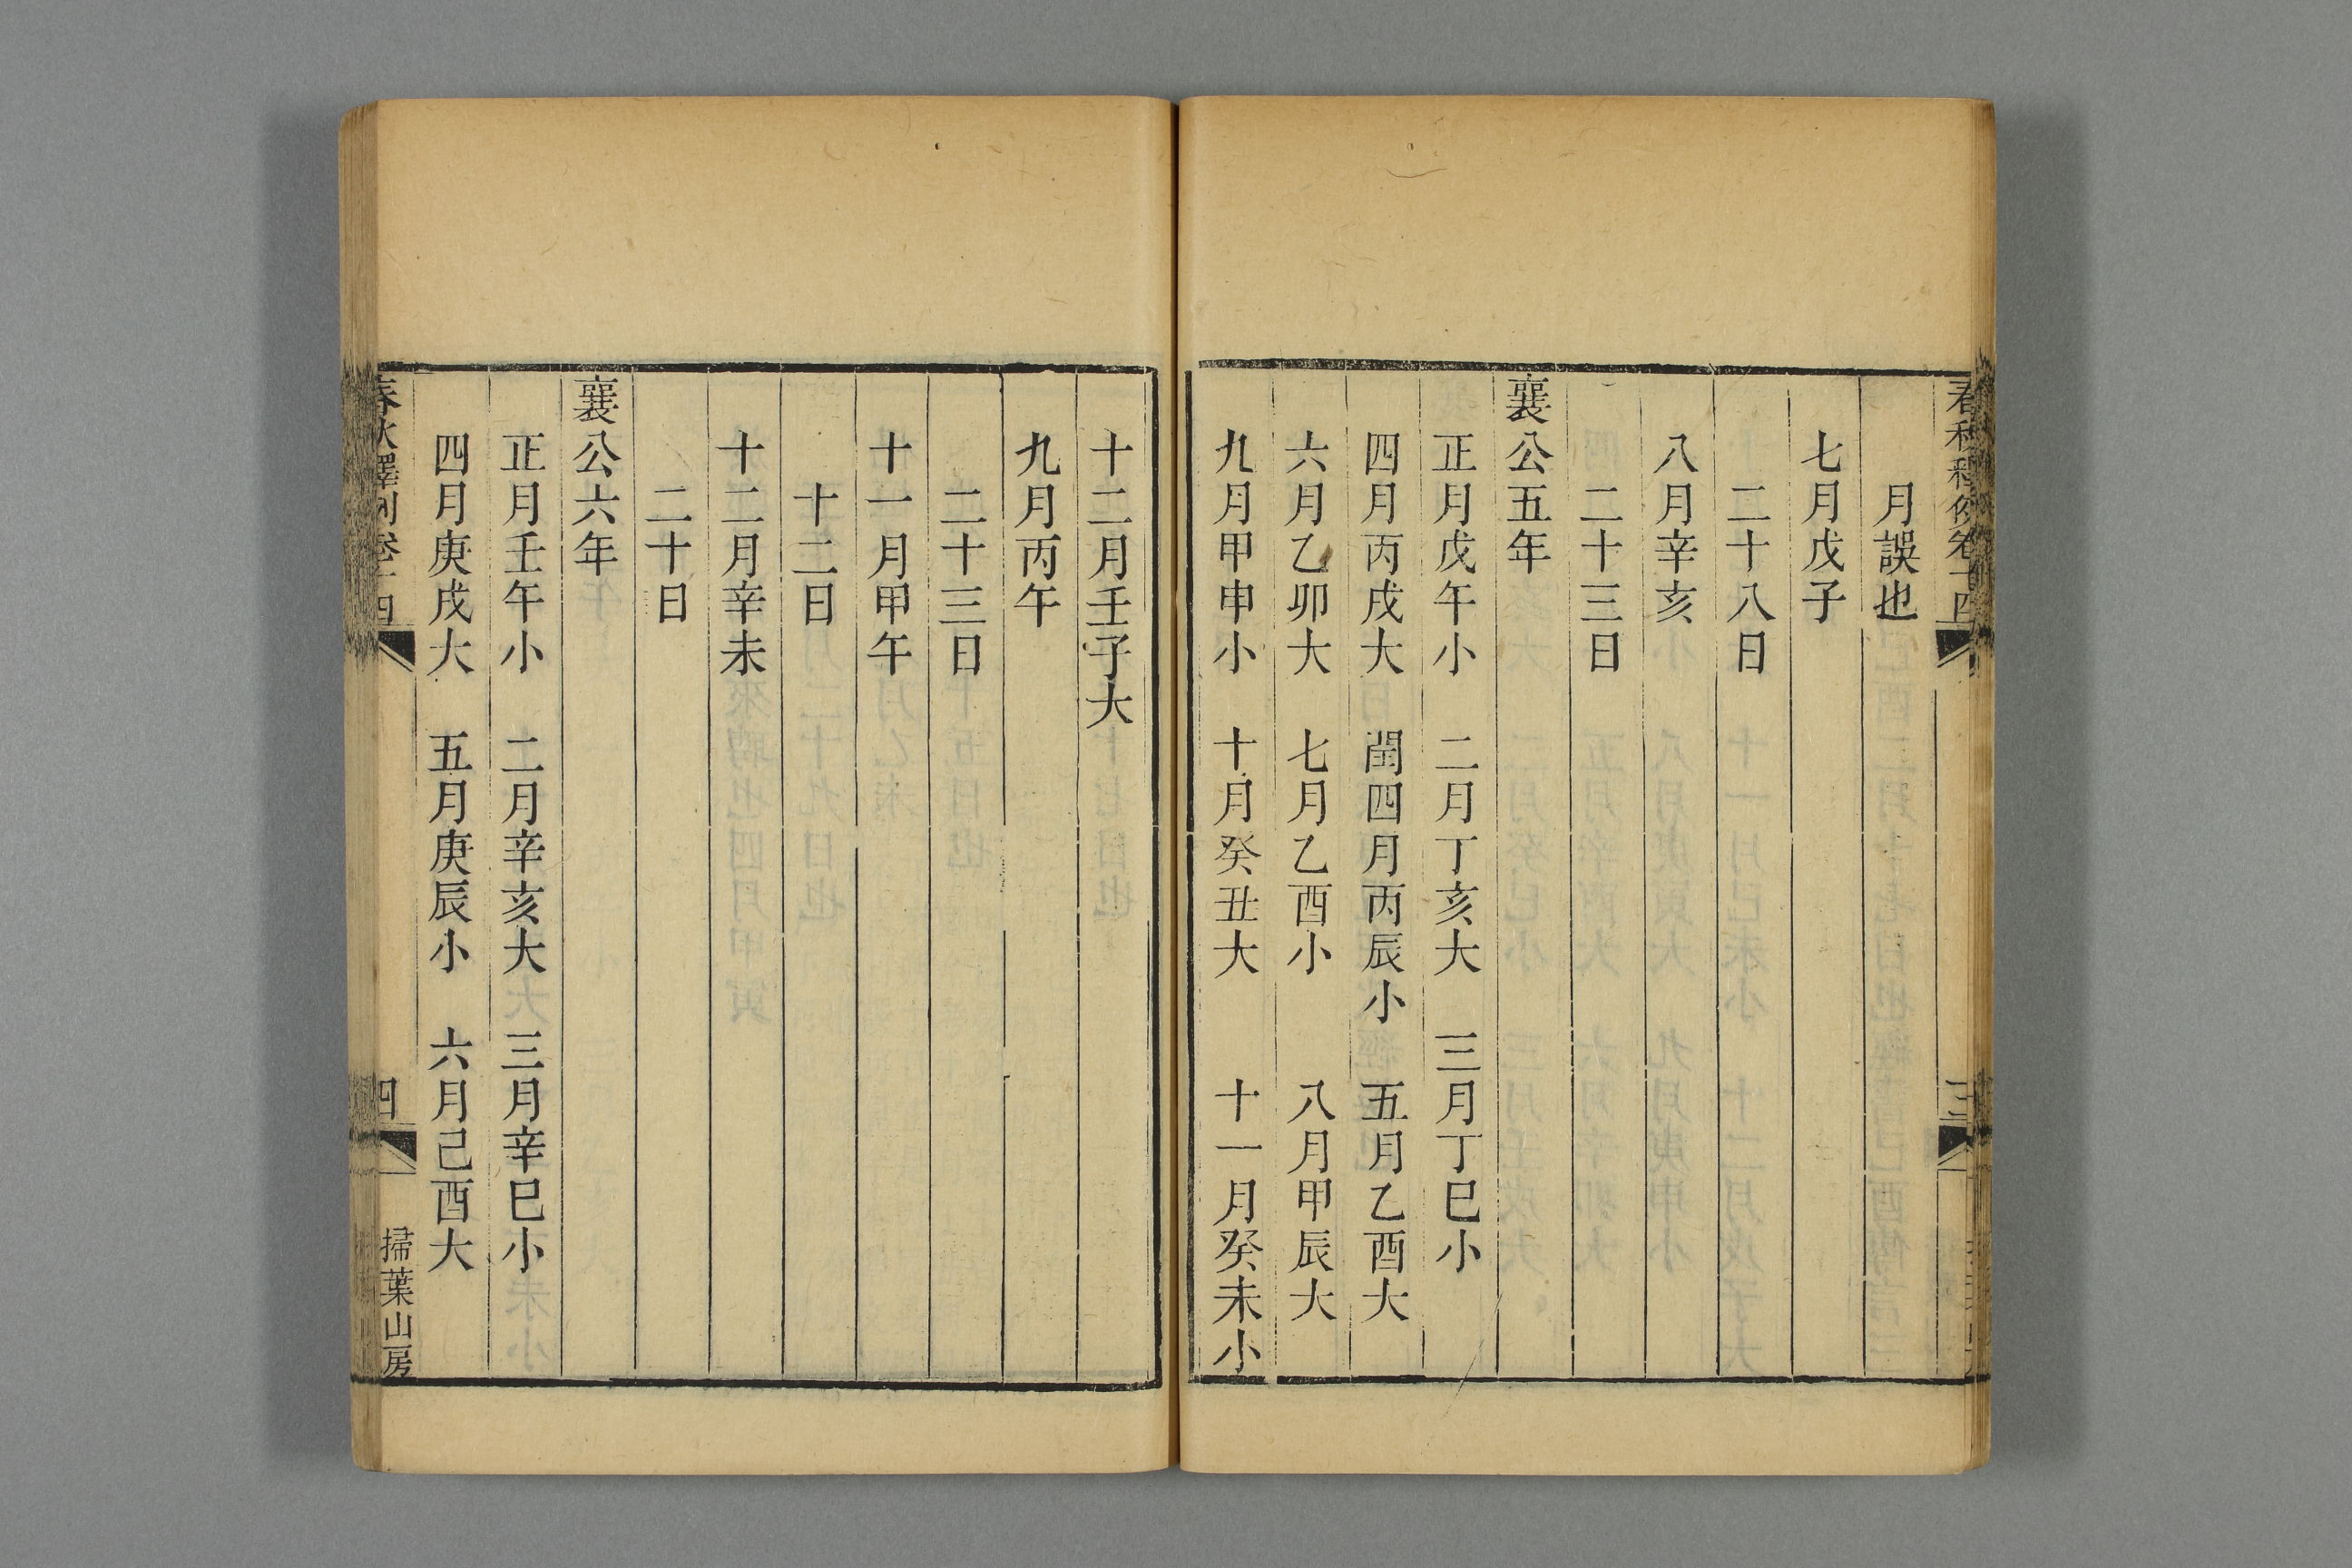 月誤也
七月戊子
二十八日
八月辛亥
二十三日
襄公五年
正月戊午小　二月丁亥大　三月丁巳小
四月丙戌大　閏四月丙辰小　五月乙酉大
六月乙卯大　七月乙酉小　八月甲辰大
九月甲申小　十月癸丑大　十一月癸未小
十二月壬子大
九月丙午
二十三日
十一月甲午
十二日
十二月辛未
二十日
襄公六年
正月壬午小　二月辛亥大　三月辛巳小
四月庚戌大　五月庚辰小　六月己酉大
春秋釋例卷十四
四
掃葉山房